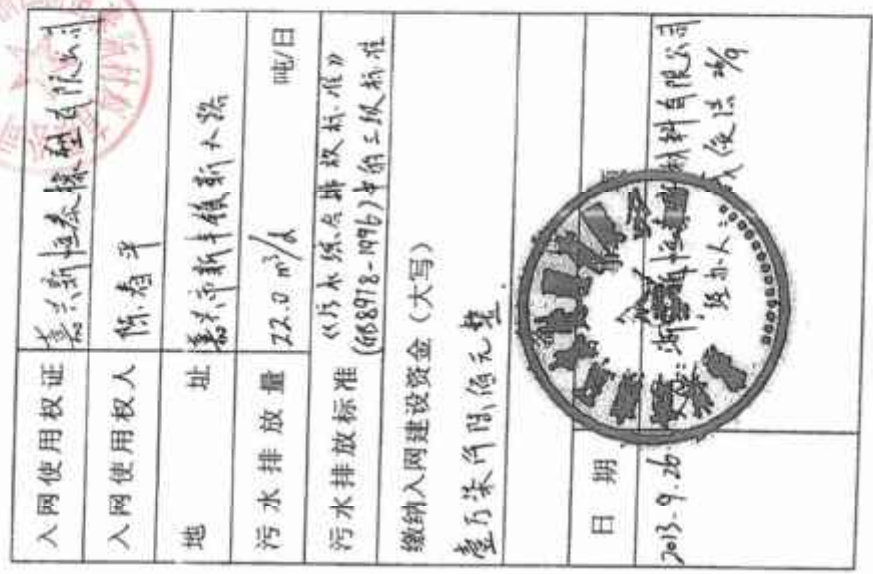 入网使用权证 嘉兴新恒泰橡塑有限公司
入网使用权人 陈春平
地 址 嘉兴市新丰镇新大路
污水排放量 22.0 m³/d 吨/日
污水排放标准 《污水综合排放标准》
(GB8978-1996)中的三级标准
缴纳入网建设资金(大写)
壹万柒仟陆佰元整.
日 期
2013.9.26 浙 新恒泰 材料有限公司
经办人: